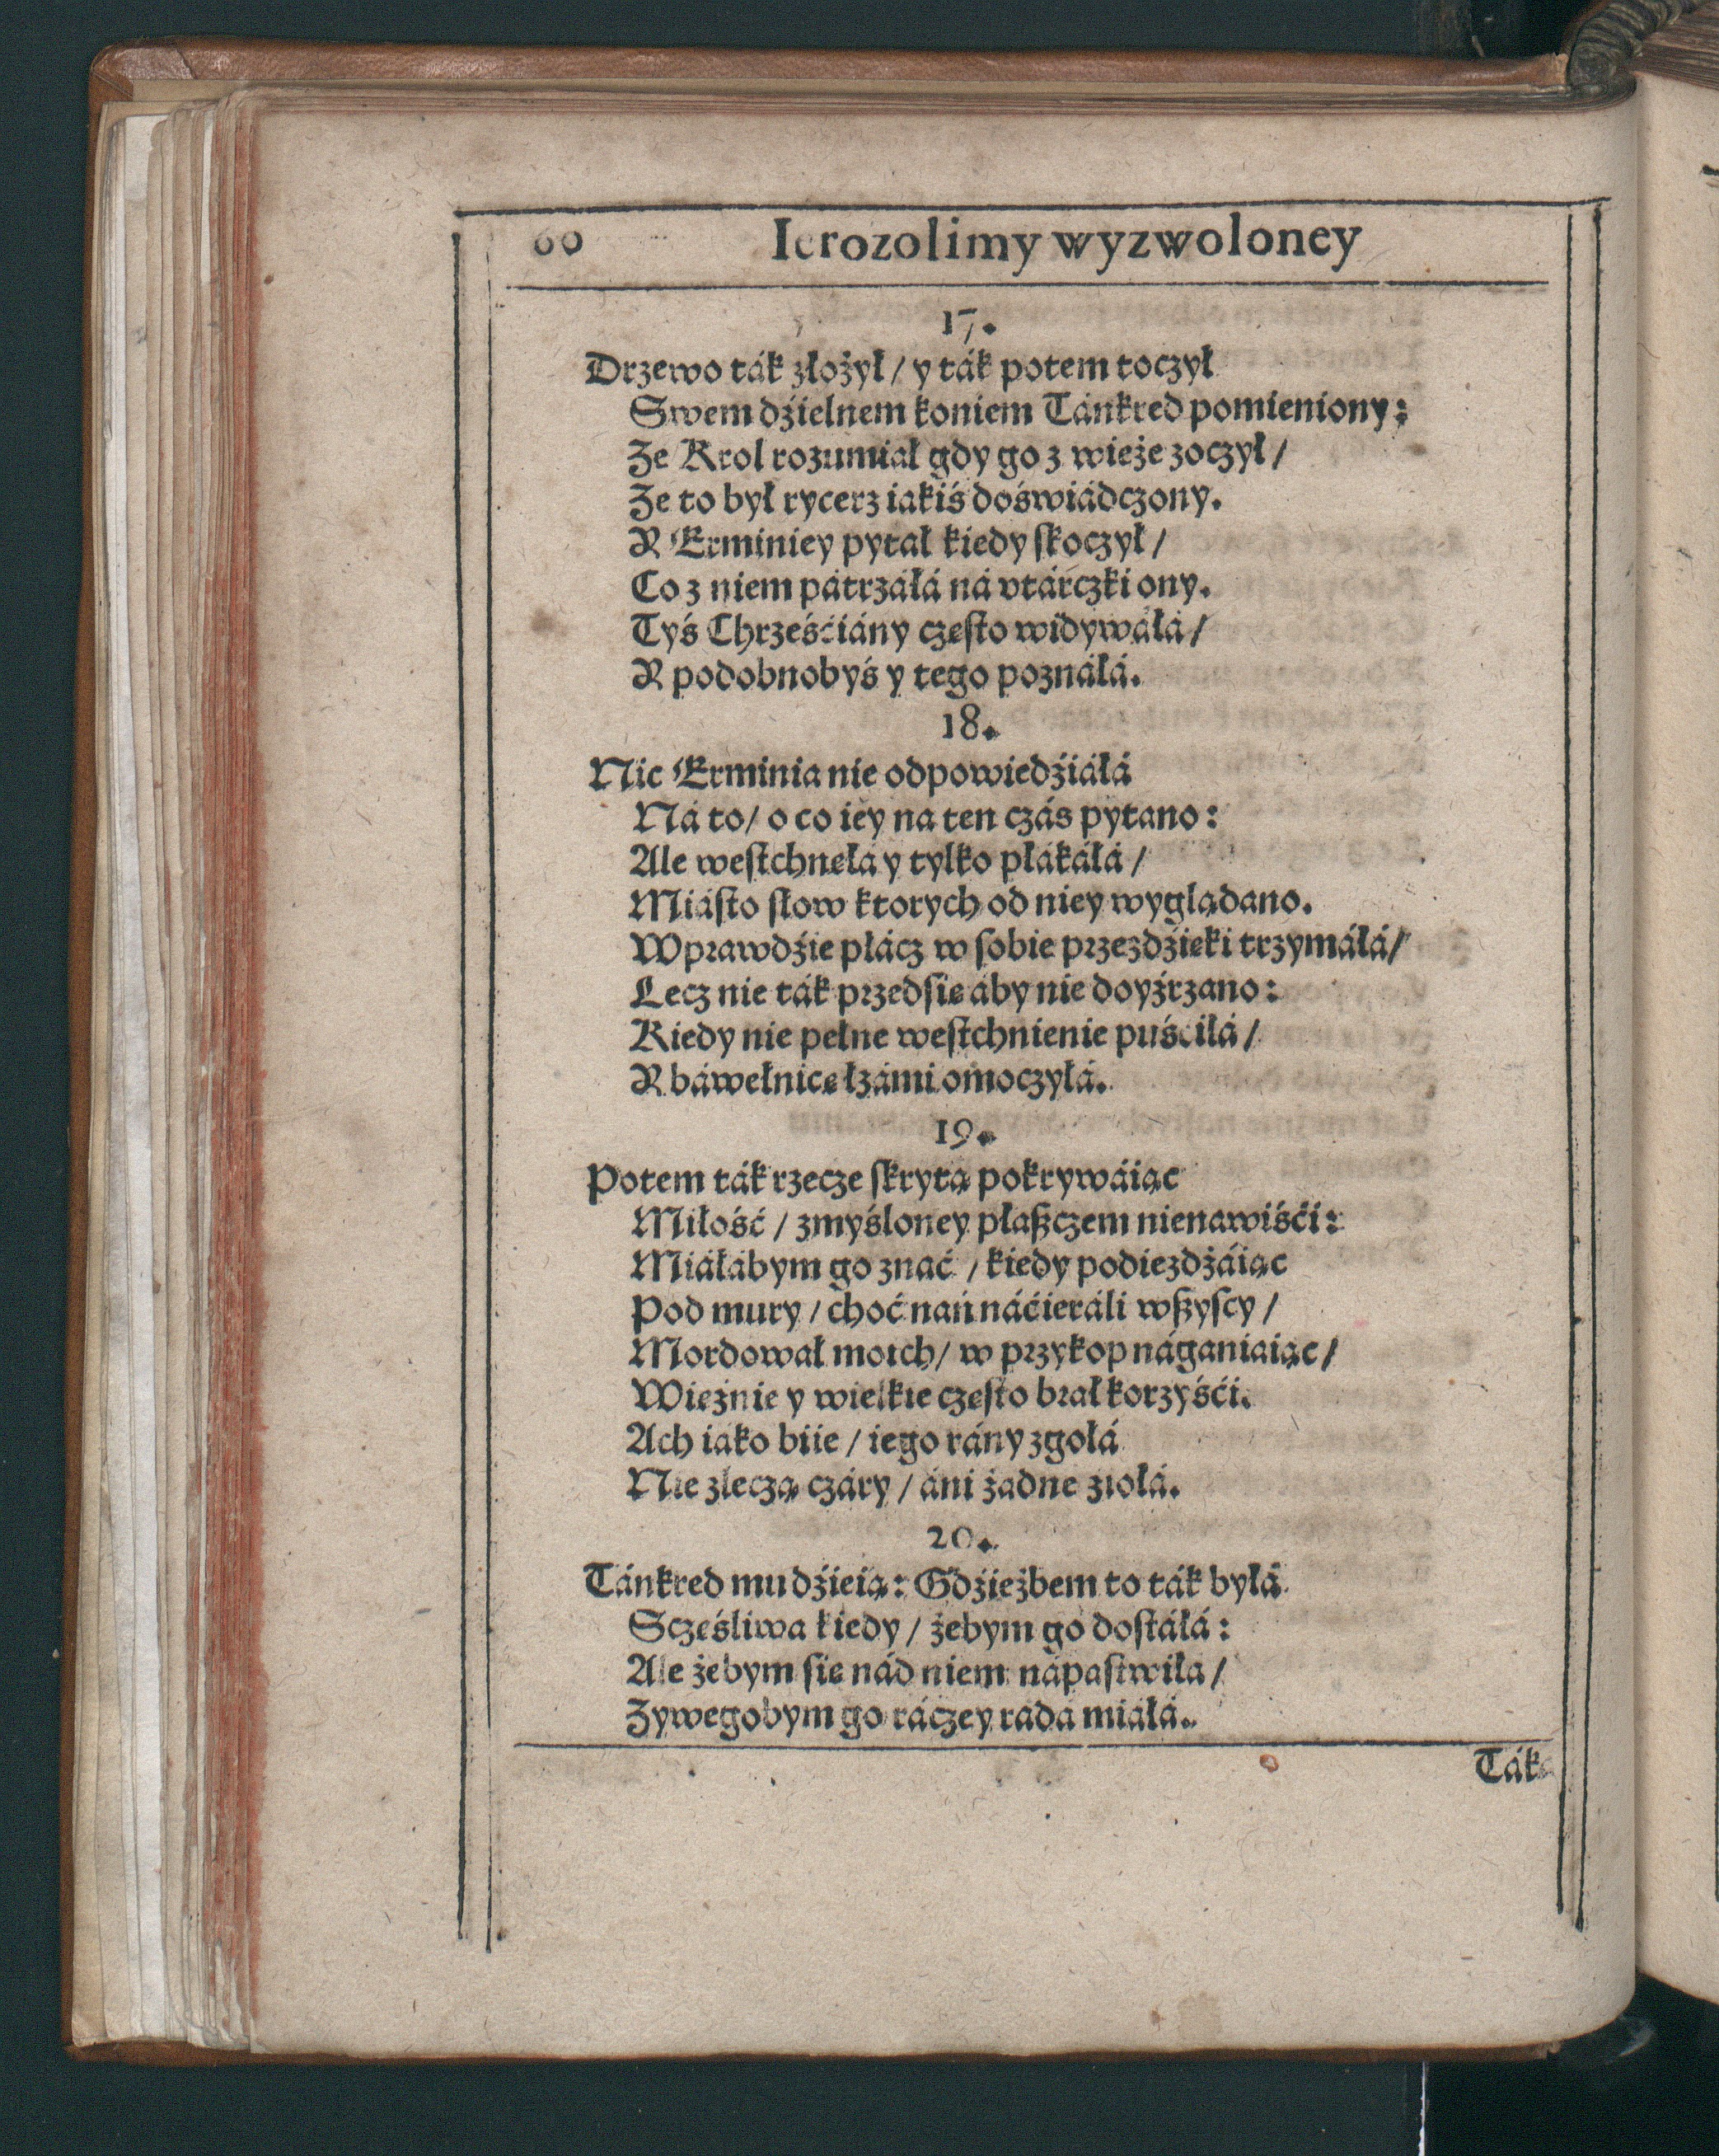 60 Ierozolimy wyzwoloney
17.
Drzewo ták złożył / y ták potem toczył
Swem dźielnem koniem Tánkred pomieniony:
Ze Krol rozumiał gdy go z wieże zoczył /
Ze to był rycerz iakiś doświádczony.
R Erminiey pytał kiedy ſkoczył /
Co z niem pátrzáłá ná vtárczki ony.
Tyś Chrześćiány częſto widywáłá /
R podobnobyś y tego poznáłá.
18.
Nic Erminia nie odpowiedźiáłá
Ná to / o co iey na ten czás pytano:
Ale weſtchnęłá y tylko płákáłá /
Miáſto słow ktorych od niey wyglądano.
Wprawdźie płácz w ſobie przezdźięki trzymáłá /
Lecz nie ták przedſię áby nie doyźrzano:
Kiedy nie pełne weſtchnienie puściłá /
R báwełnicę łzámi omoczyłá.
19.
Potem ták rzecze ſkrytą pokrywáiąc
Miłość / zmyśloney płaſzczem nienawiśći:
Miáłábym go znáć / kiedy podiezdżáiąc
Pod mury / choć nań náćieráli wſzyſcy /
Mordował moich / w przykop nágániaiąc /
Więźnie y wielkie częſto brał korzyśći.
Ach iáko biie / iego rány zgołá
Nie zleczą czáry / áni żadne ziołá.
20.
Tánkred mu dźieią: Gdźieżbem to ták byłá
Sczęśliwa kiedy / żebym go doſtáłá:
Ale żebym ſię nád niem nápaſtwiła /
Zywegobym go ráczey rada miáłá.
Ták